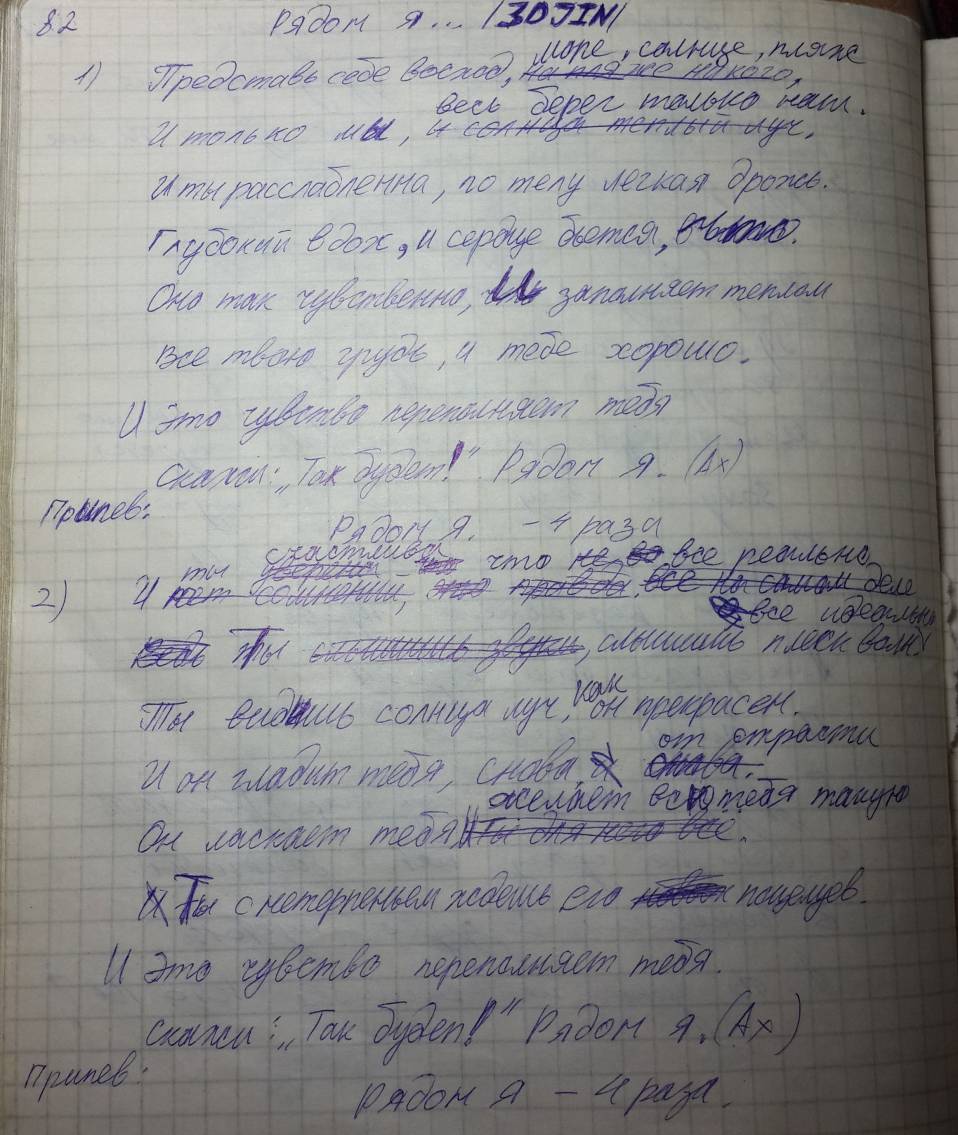 82
Рядом я... /ЗОJIN/
море, солнце, пляж
1) Представь себе восход, на пляже никого,
весь берег только наш.
И только мы, и солнца теплый луч.
И ты расслабленна, по телу легкая дрожь.
Глубокий вдох, и сердце бьется,
Оно так чувственно, и заполняет теплом
Все твою грудь, и тебе хорошо.
И Это чувство переполняет тебя
Скажи: „Так будет!". Рядом я. (Ах)
Припев:
Рядом я. – 4 раза
ты счастлива что не во все реально
2) И нет сомнений, это правда, все на самом деле
все идеально
Ведь Ты слышишь звуки, слышишь плеск волн.
Ты видишь солнца луч, как он прекрасен.
от страсти
И он гладит тебя, снова, и снова.
желает всю тебя такую
Он ласкает тебя, и Ты для него всё.
И Ты с нетерпеньем ждешь его поцелуев.
И Это чувство переполняет тебя.
Скажи: „Так будет!" Рядом я. (Ах)
Припев:
Рядом я – 4 раза.